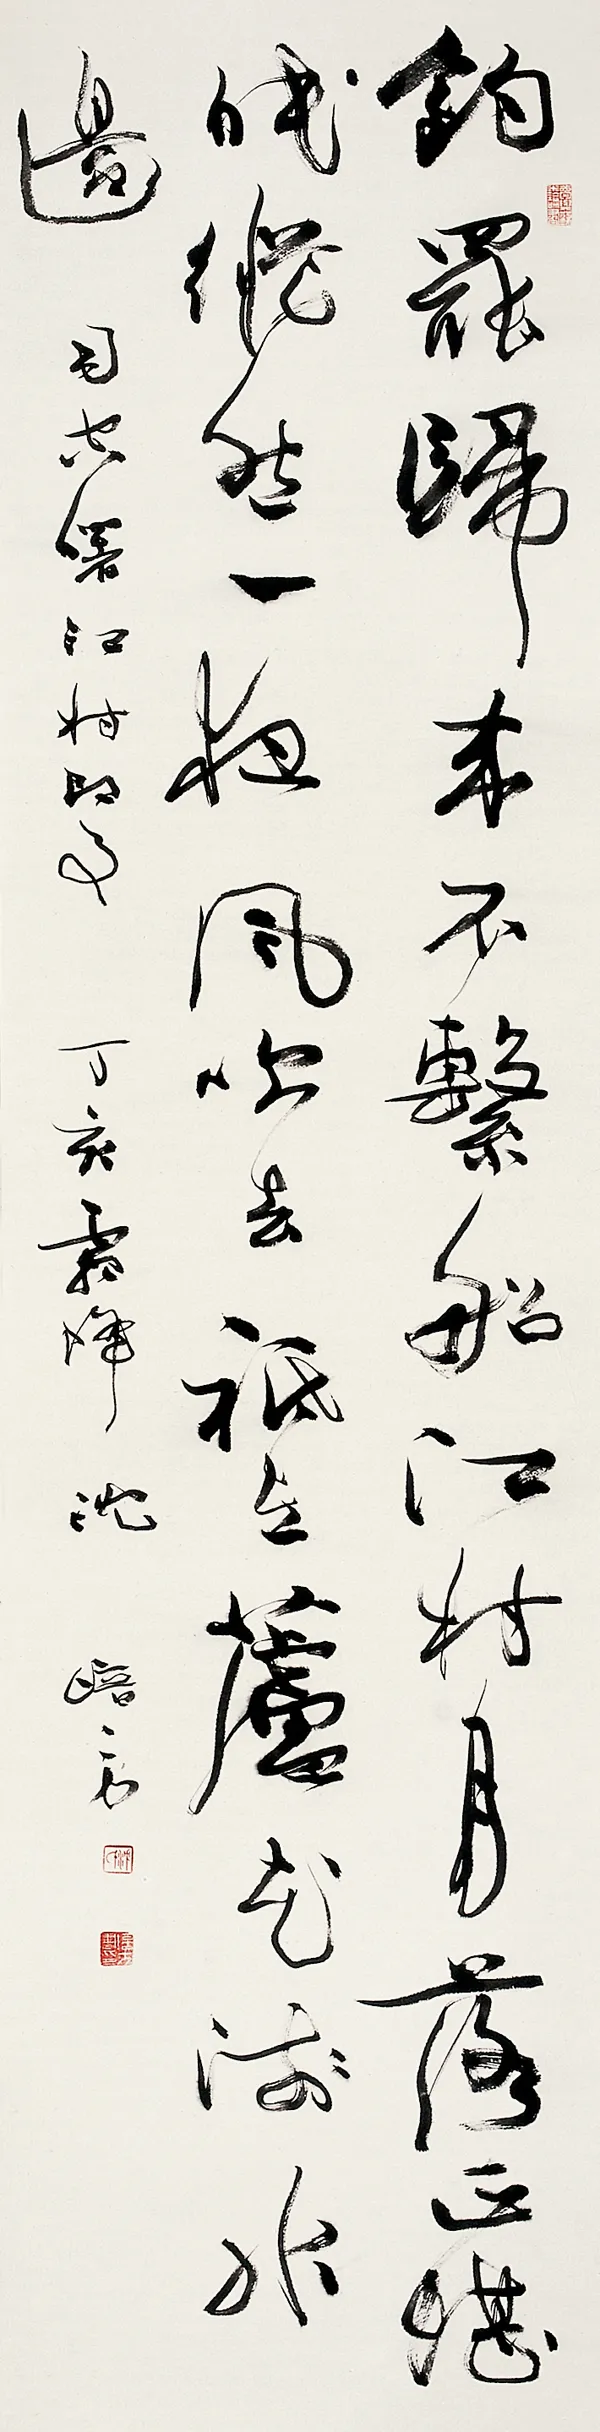 釣罷歸來不繫船江村月落正堪
眠縱然一夜風吹去祇在蘆花淺水
邊
司空曙江村即事 丁亥霜降 沈培方